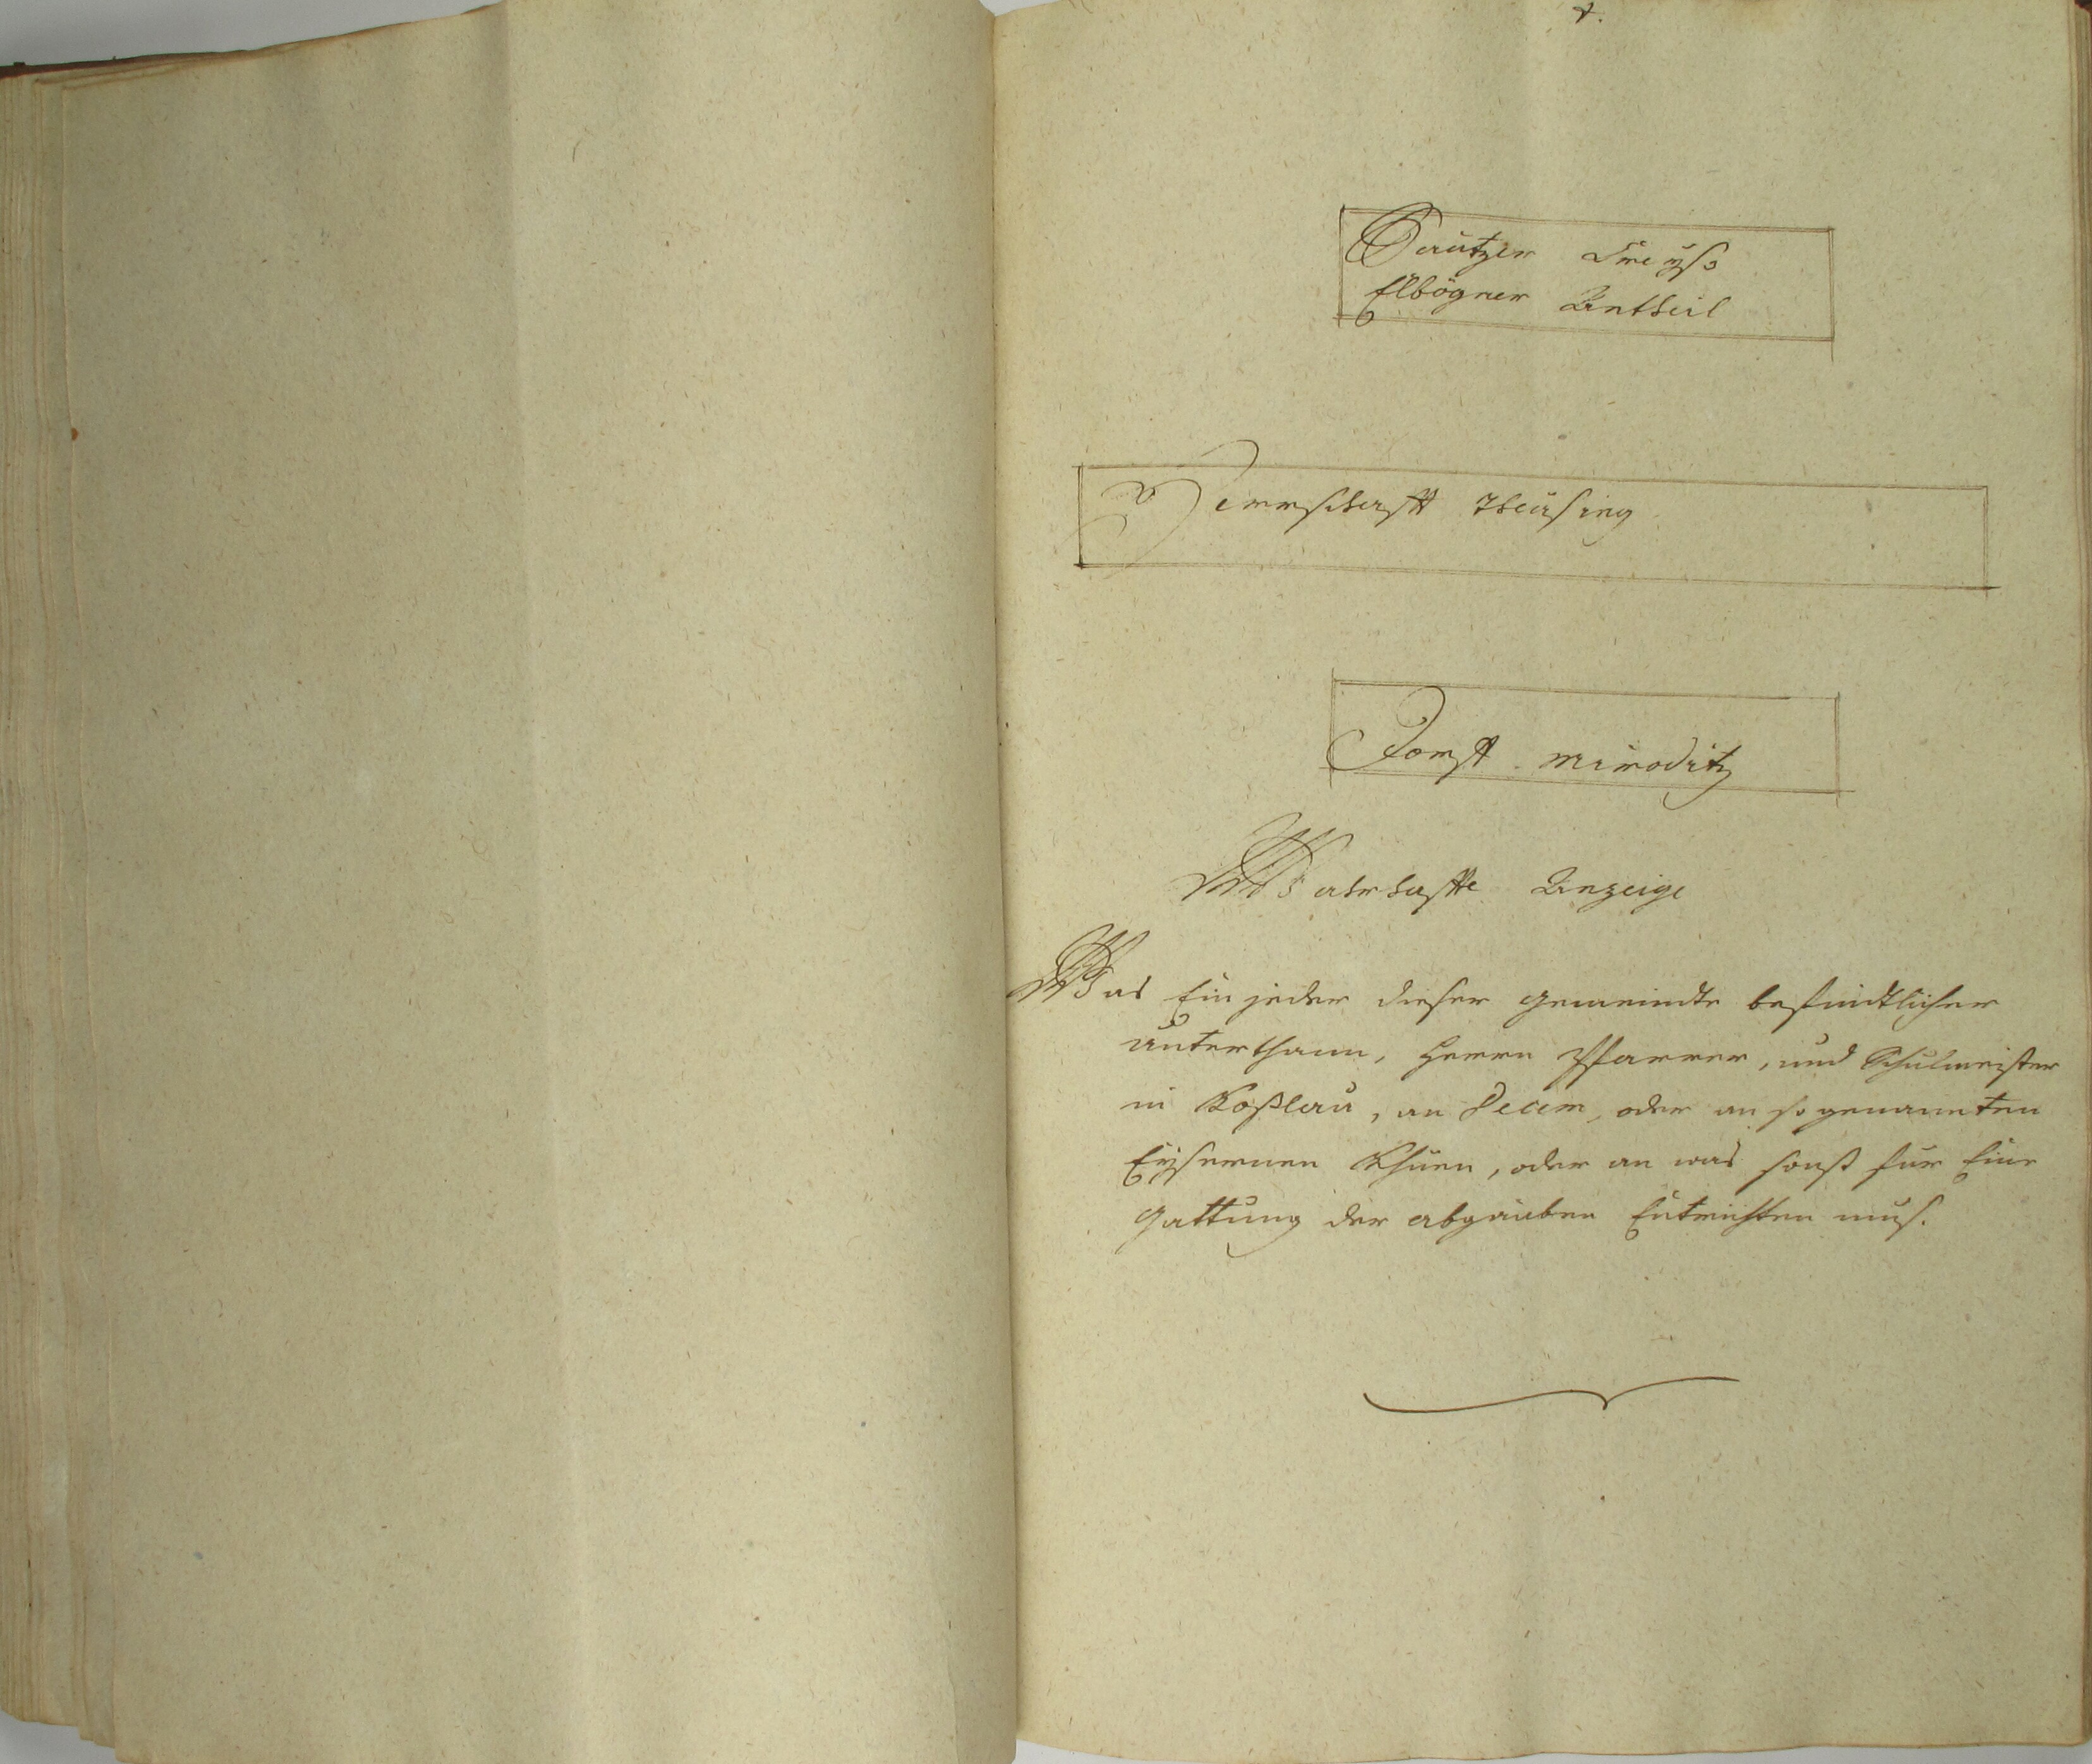 Saatzer Creyß
Elbögner Antheil
Herrschafft Theusing
Dorff Miroditz
Wahrhaffte Anzeige
Was Ein jeder dieser gemeindte befindtlicher
unterthann, Herrn Pfarrer, und Schulmeister
in Koßlau, an Decem, oder an so genannten
Eysernen Khüen, oder an was sonst für Eine
gattung der abgaaben Entrichten mus.